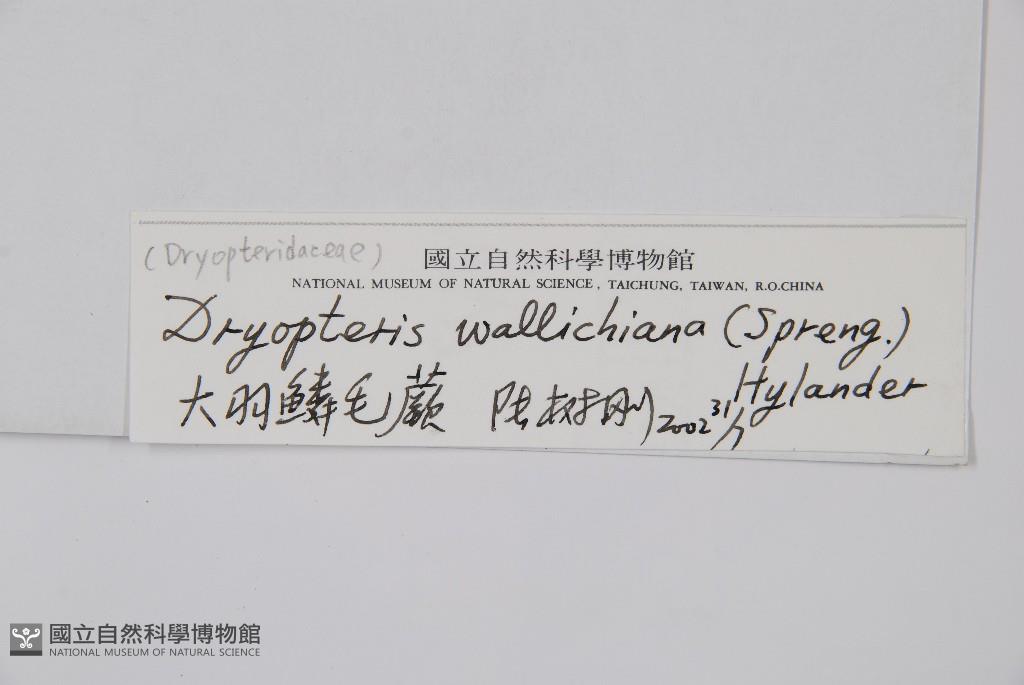 (Dryopteridaceae)
國立自然科學博物館
NATIONAL MUSEUM OF NATURAL SCIENCE, TAICHUNG, TAIWAN, R.O.CHINA
Dryopteris wallichiana (Spreng.)
Hylander
大羽鱗毛蕨 陆树刚 2002 31/7
國立自然科學博物館
NATIONAL MUSEUM OF NATURAL SCIENCE